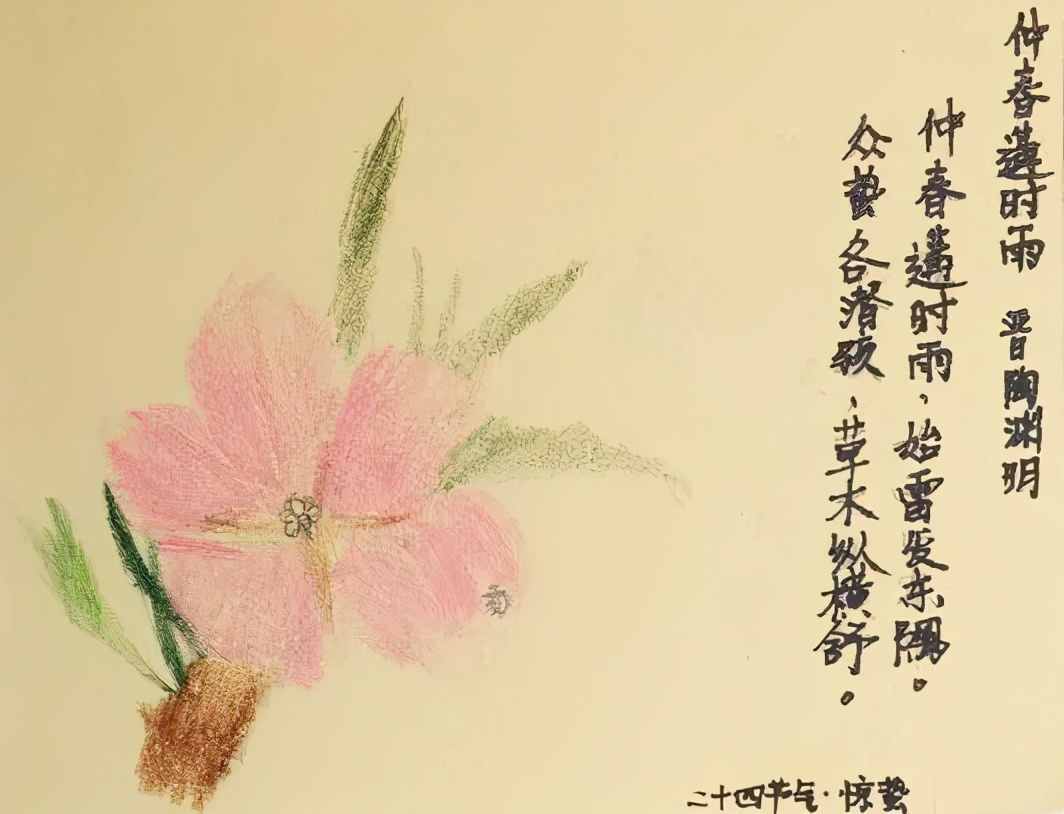 仲春遘时雨 晋陶渊明
仲春遘时雨，始雷发东隅。
众蛰各潜骇、草木纵横舒。
二十四节气·惊蛰